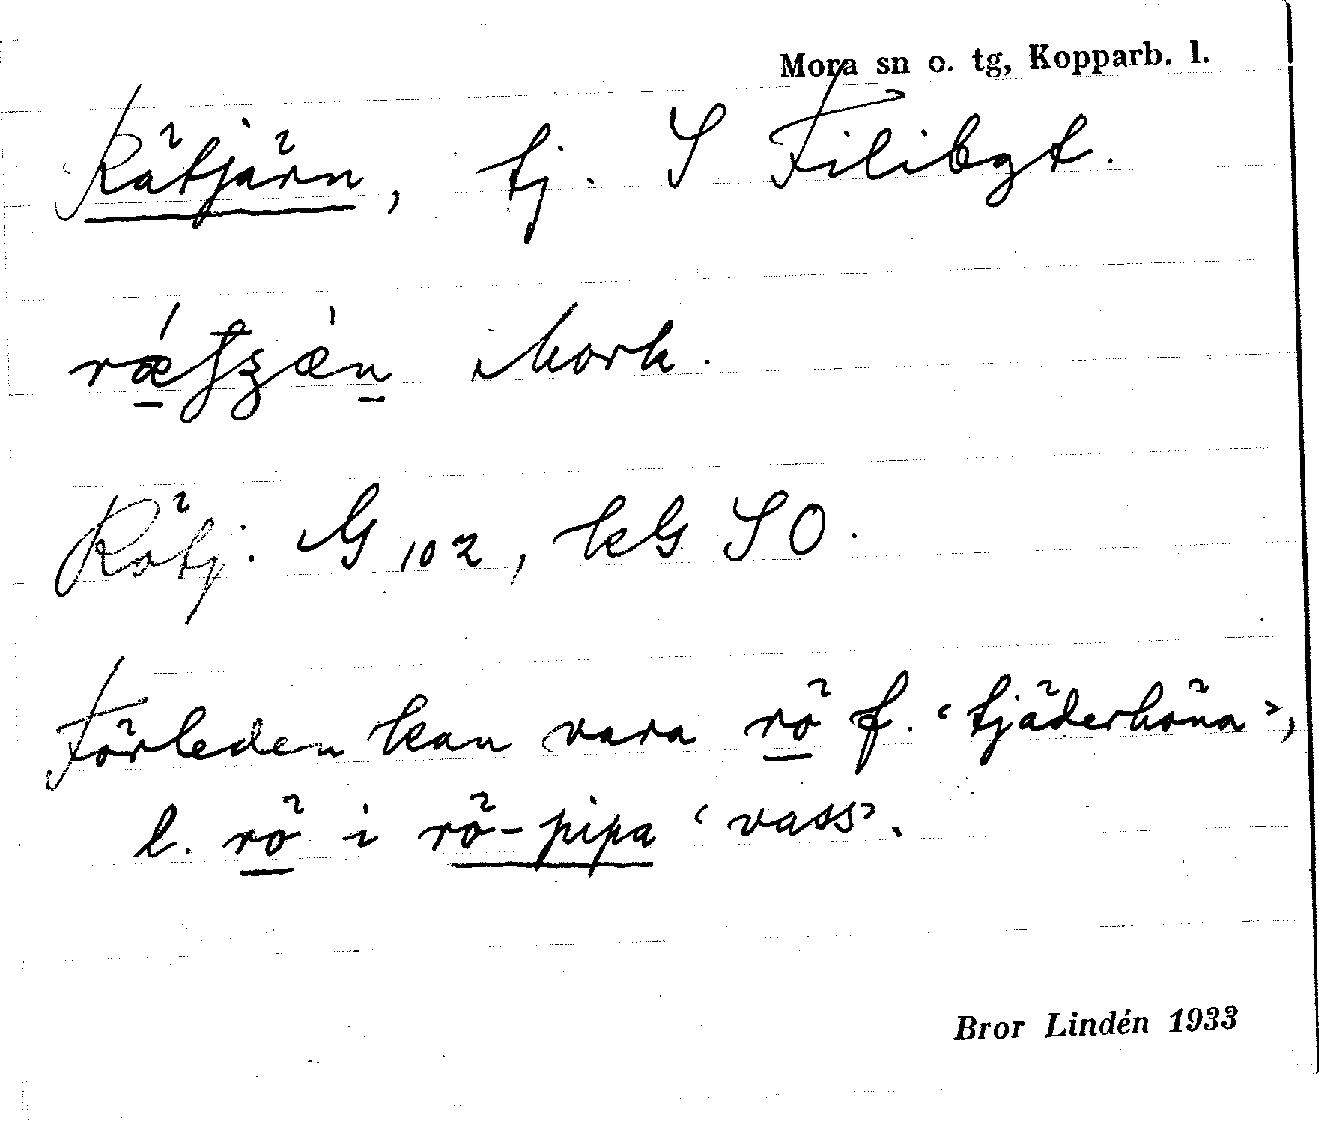 Mora sn o. tg, Kopparb. l.
Rätjärn, tj. S Filibgt.
Mork.
Rötj. G 102, kG SO.
Förleden kan vara rö f. ‘tjäderhöna’,
l. rö i rö-pipa ‘vass’.
Bror Lindén 1933